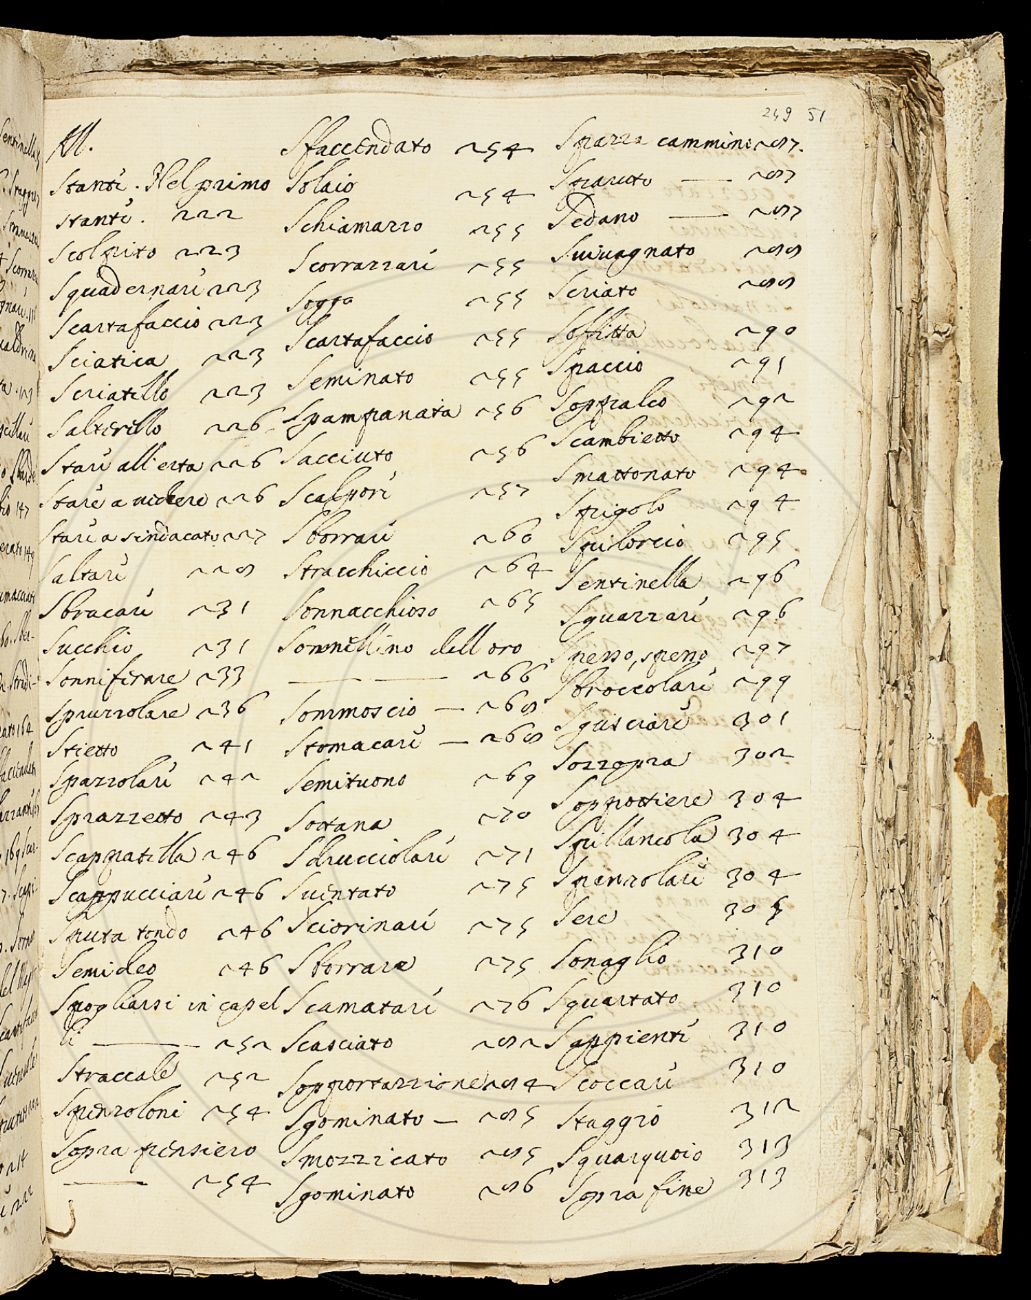 249 51
All.
Stanti. Nel primo
Stanti. 222
Scolpito 223
Squadernari 223
Scartafaccio 223
Sciatica 223
Scriatillo 223
Salterello 226
Stari all'erta 226
Stare a vedere 226
Stari a sindacato 227
Saltari 228
Sbracari 231
Succhio 231
Sonniferare 233
Spruzzolare 236
Stietto 241
Spazzolari 242
Sprazzetto 243
Scappatella 246
Scappucciari 246
Sputa tondo 246
Semideo 246
Spogliarsi in capel
li — 252
Straccale 252
Spenzoloni 254
Sopra pensiero
— 254
Sfaccendato 254
Solaio 254
Schiamazzo 255
Scorrazzari 255
Soggo 255
Scartafaccio 255
Seminato 255
Spampanata 256
Sacciuto 256
Scalpori 257
Sborrari 260
Stracchiccio 264
Sonnacchioso 265
Sommellino dell oro
— — 266
Sommoscio — 268
Stomacari — 268
Semituono 269
Sottana 270
Sdrucciolari 271
Suentato 275
Sciorinari 275
Sborrare 275
Scamatari 276
Scasciato 282
Sopportazzione 284
Sgominato — 285
Smozzicato 285
Sgominato 286
Spazza cammino 287.
Sparuto — 287
Sedano — 287
Suivagnato 288
Scriato 288
Soffitta 290
Spaccio 291
Soppalco 292
Scambietto 294
Smattonato 294
Spigolo 294
Spilorcio 295
Sentinella 296
Squazzari 296
Spesso, spesso 297
Sbroccolari 299
Sgusciari 301
Sozzopra 302
Soppottiere 304
Spillancola 304
Spenzolari 304
Sere 305
Sonaglio 310
Squartato 310
Sappienti 310
Scoccari 310
Staggio 312
Squarquoio 313
Sopra fine 313